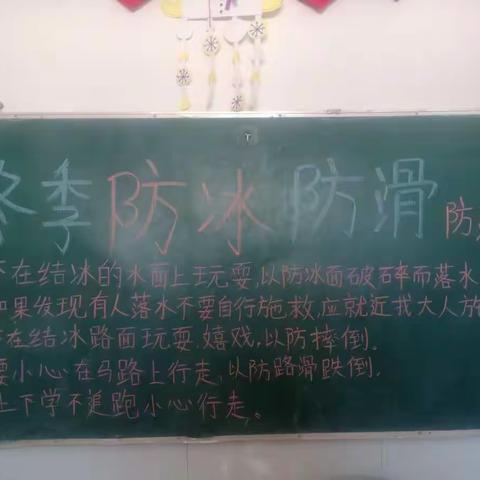 冬季防冰防滑 防
不在结冰的水面上玩耍,以防冰面破碎而落水
如果发现有人落水不要自行施救,应就近找大人施
在结冰路面玩耍、嬉戏,以防摔倒.
要小心在马路上行走,以防路滑跌倒,
上下学不追跑小心行走。